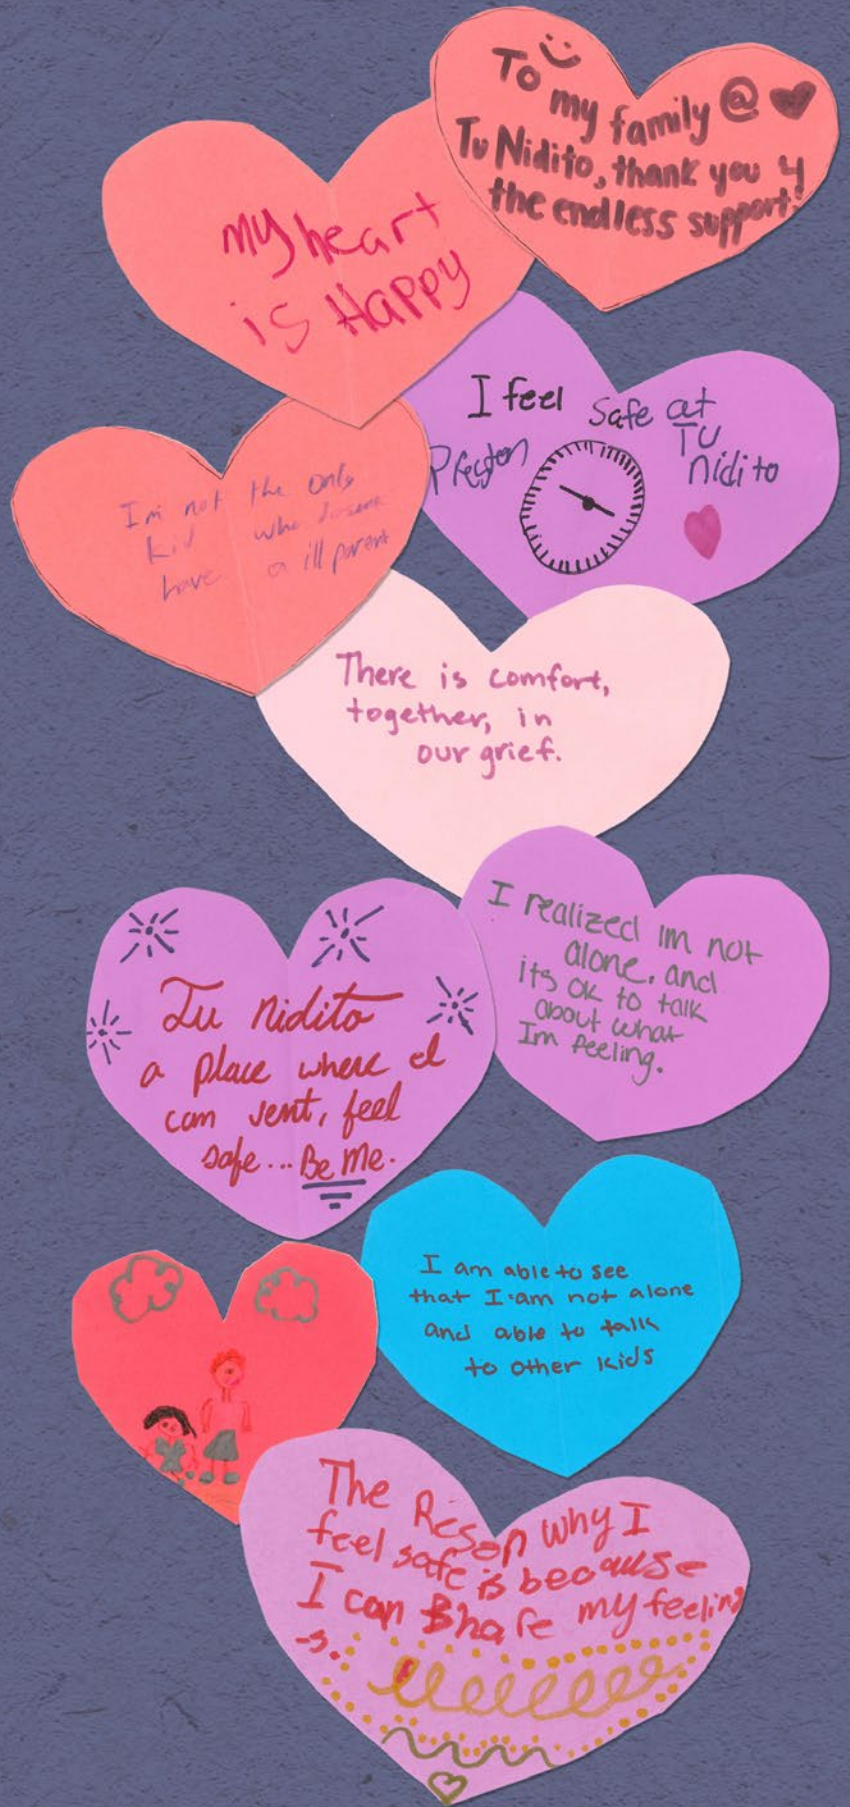 To
my family @
Tu Nidito, thank you 4
the endless support!
my heart
is Happy
I feel safe at
Tu
nidito
Preston
Im not the only
kid who
have a ill parent
There is comfort,
together, in
our grief.
I realized im not
alone. and
its ok to talk
about what
Im feeling.
Tu Nidito
a place where I
can vent, feel
safe... Be Me.
I am able to see
that I am not alone
and able to talk
to other kids
The Reson why I
feel safe is because
I can Share my feeling
-s.